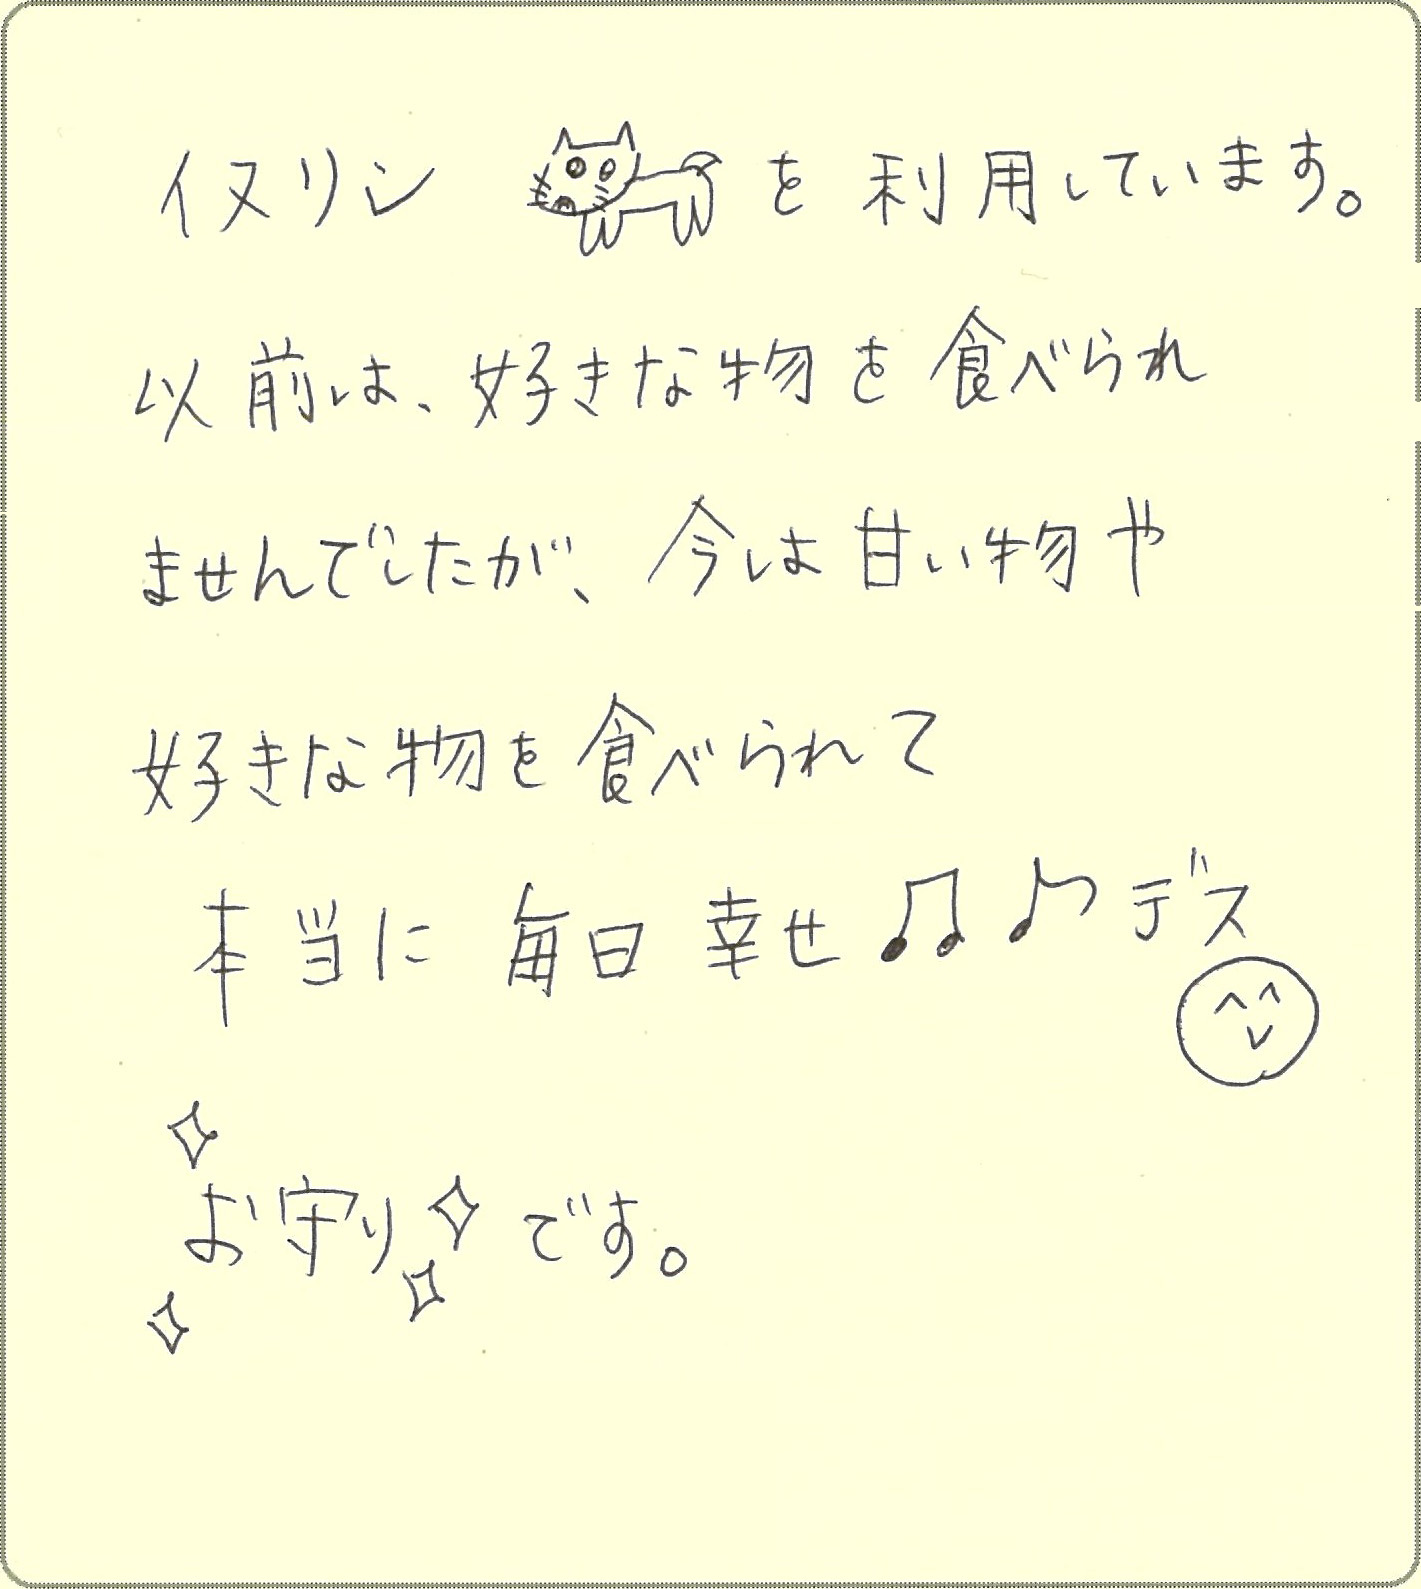 イヌリン を利用しています。
以前は、好きな物を食べられ
ませんでしたが、今は甘い物や
好きな物を食べられて
本当に毎日幸せ♫♪デス
お守りです。